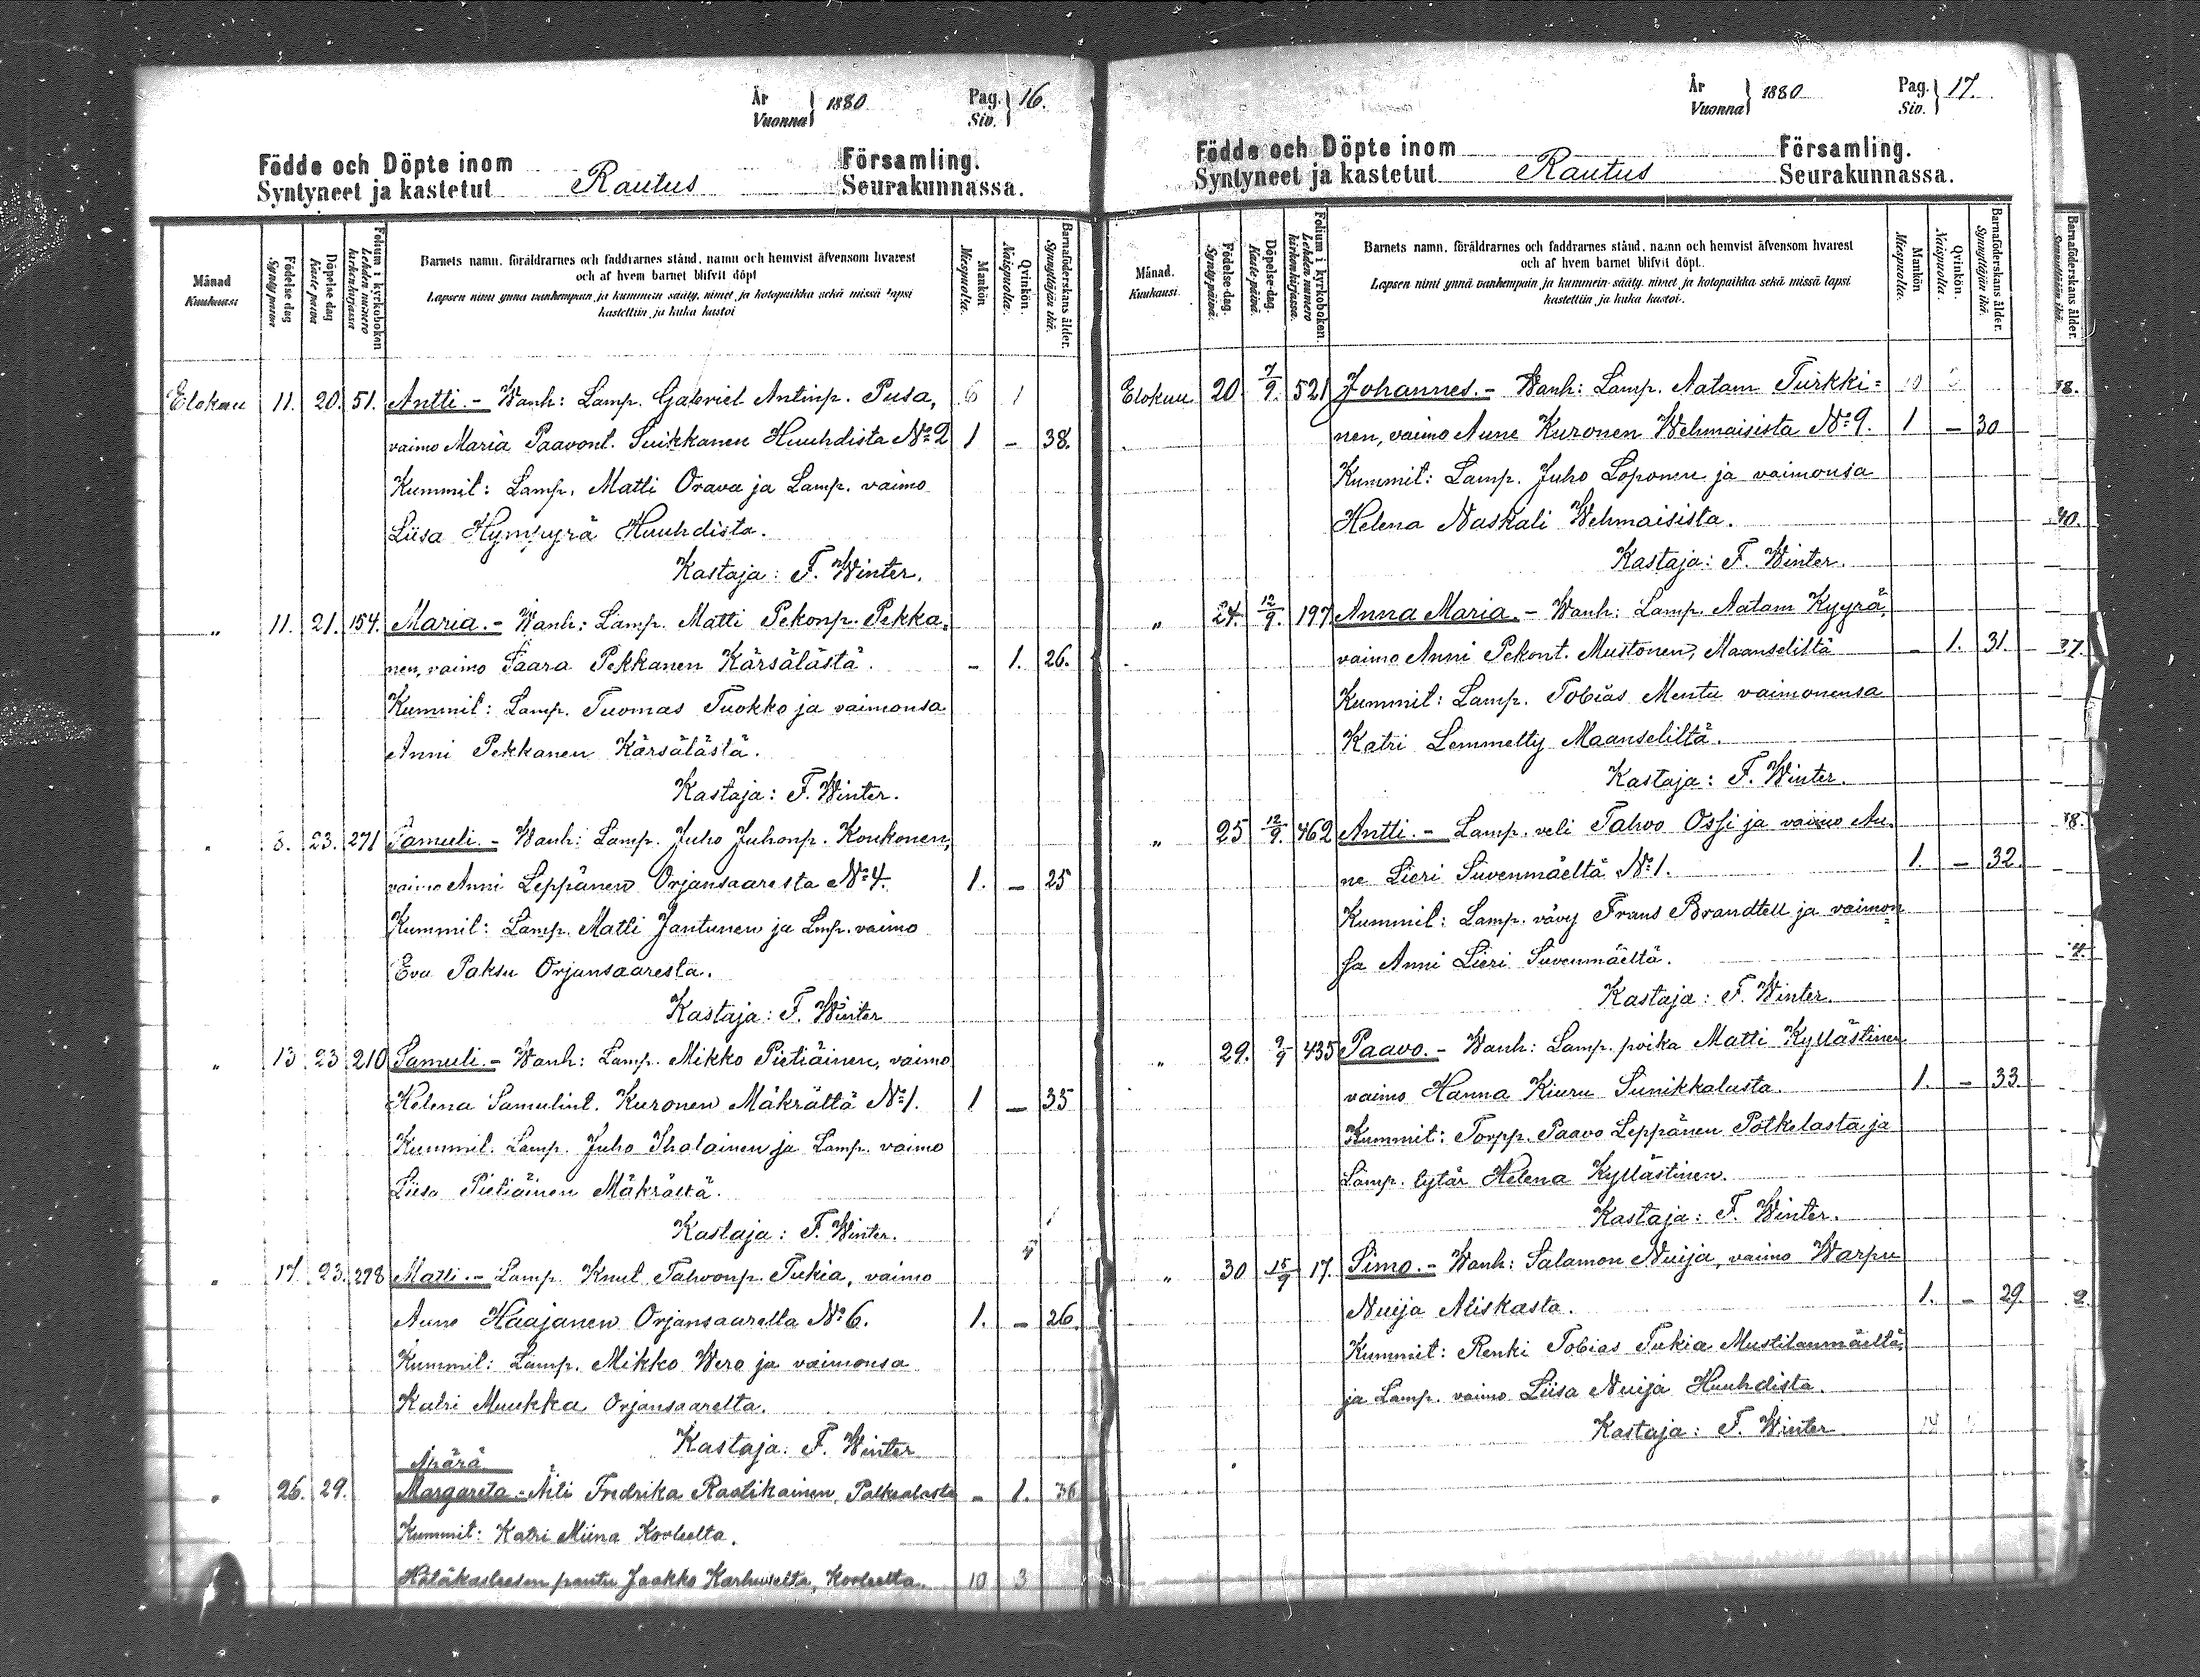 År
Vuonna } 1880
Pag.
Siv. } 16.
Födde och Döpte inom Församling.
Syntyneet ja kastetut Rautus Seurakunnassa.
Månad
Kuukausi
Födelse dag
Synty päivä
Döpelse dag
Kaste päivä
Folium i kyrkoboken
Lehden numero
kirkonkirjassa
Barnets namn, föräldrarnes och faddrarnes stånd, namn och hemvist äfvensom hvarest
och af hvem barnet blifvit döpt
Lapsen nimi ynnä vanhempain ja kummein sääty, nimet ja kotopaikka sekä missä lapsi
kastettiin ja kuka kastoi
Mankön
Miespuolta.
Qvinkön.
Naispuolta.
Barnaföderskans ålder.
Synnyttäjän ikä.
Elokuu 11. 20. 51. Antti. - Wanh: Lamp. Gabriel Antinp. Pusa, 6 1
vaimo Maria Paavont. Suikkanen Huuhdista No 2 1 - 38.
Kummit: Lamp. Matti Orava ja Lamp. vaimo
Liisa Hympyrä Huuhdista.
Kastaja: F. Winter.
" 11. 21. 154. Maria. - Wanh: Lamp. Matti Pekonp. Pekka-
nen, vaimo Saara Pekkanen Kärsälästä. - 1. 26.
Kummit: Lamp. Tuomas Tuokko ja vaimonsa
Anni Pekkanen Kärsälästä.
Kastaja: F. Winter.
" 23. 271 Samuli. - Wanh: Lamp. Juho Juhonp. Koukonen,
vaimo Anni Leppänen Orjansaaresta No 4. 1. - 25
Kummit: Lamp. Matti Jantunen ja Lmp. vaimo
Eva Paksu Orjansaaresta.
Kastaja: F. Winter
" 13 23 210 Samuli. - Wanh: Lamp. Mikko Pietiäinen, vaimo
Helena Samulint. Kuronen Mäkrältä No 1. 1 - 35
Kummit. Lamp. Juho Ihalainen ja Lamp. vaimo
Liisa Pietiäinen Mäkrältä.
Kastaja: F. Winter.
" 17. 23. 278 Matti. - Lamp. Knut Tahvonp. Tukia, vaimo
Aune Haajanen Orjansaarelta No 6. 1. - 26.
Kummit: Lamp. Mikko Wero ja vaimonsa
Katri Muukka Orjansaarelta.
Kastaja: F. Winter
Äpärä
" 26. 29. Margareta - Äiti Fredrika Raatikainen, Palkealasta - 1. 36
Kummit: Katri Miina Korleelta.
Hätäkasteesen pantu Jaakko Karhuselta, Korleelta. 10 3
År
Vuonna } 1880
Pag.
Siv. } 17.
Födde och Döpte inom Församling.
Syntyneet ja kastetut Rautus Seurakunnassa.
Månad.
Kuukausi.
Födelse dag.
Syntypäivä.
Döpelse-dag.
Kaste-päivä.
Folium i kyrkoboken.
Lehden numero
kirkonkirjassa.
Barnets namn, föräldrarnes och faddrarnes stånd, namn och hemvist äfvensom hvarest
och af hvem barnet blifvit döpt.
Lapsen nimi ynnä vanhempain ja kummein sääty, nimet ja kotopaikka sekä missä lapsi
kastettiin ja kuka kastoi.
Mankön
Miespuolta.
Qvinkön.
Naispuolta.
Barnaföderskans ålder.
Synnyttäjän ikä.
Barnaföderskans ålder.
Synnyttäjän ikä.
Elokuu 20 7/9. 521 Johannes. - Wanh: Lamp. Aatam Turkki=
nen, vaimo Aune Kuronen Wehmaisista No 9. 1 - 30
Kummit: Lamp. Juho Loponen ja vaimonsa
Helena Naskali Wehmaisista.
Kastaja: F. Winter.
" 24. 12/9. 197 Anna Maria. - Wanh: Lamp. Aatam Kyyrä,
vaimo Anni Pekont. Mustonen, Maanseliltä - 1. 31.
Kummit: Lamp. Tobias Mentu vaimonensa
Katri Lemmetty Maanseliltä.
Kastaja: F. Winter.
" 25 12/9. 462 Antti. - Lamp. veli Tahvo Ossi ja vaimo Au-
ne Lieri Suvenmäeltä No 1. 1. - 32.
Kummit: Lamp. vävy Frans Brandtell ja vaimon
sa Anni Lieri Suvenmäeltä.
Kastaja: F. Winter.
" 29. 9/9 435 Paavo. - Wanh: Lamp. poika Matti Kyllästinen
vaimo Hanna Kiuru Sunikkalasta. 1. - 33.
Kummit: Torpp. Paavo Leppänen Potkelasta ja
Lamp. tytär Helena Kyllästinen.
Kastaja: F. Winter.
" 30 15/9 17. Simo. - Wanh: Salamon Nuija, vaimo Warpu
Nuija Aliskasta. 1. - 29.
Kummit: Renki Tobias Tukia Mustilanmäeltä,
ja Lamp. vaimo Liisa Nuija Huuhdista.
Kastaja: F. Winter